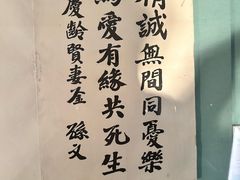 精誠無間同憂樂
愛有緣共死生
慶齡賢妻 孫文